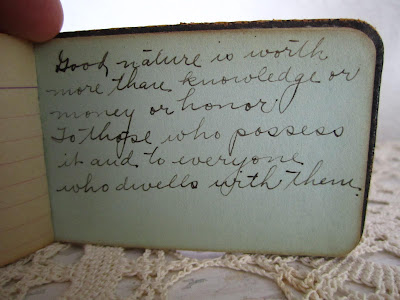 Good nature is worth
more than knowledge or
money or honor
To those who possess
it and to everyone
who dwells with them.